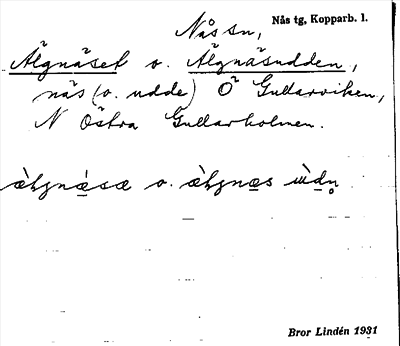 Nås sn, Nås tg, Kopparb. l.
Älgnäset o. Älgnäsudden,
näs (o. udde) Ö Gullarviken,
N Östra Gullarholmen.
o.
Bror Lindén 1931